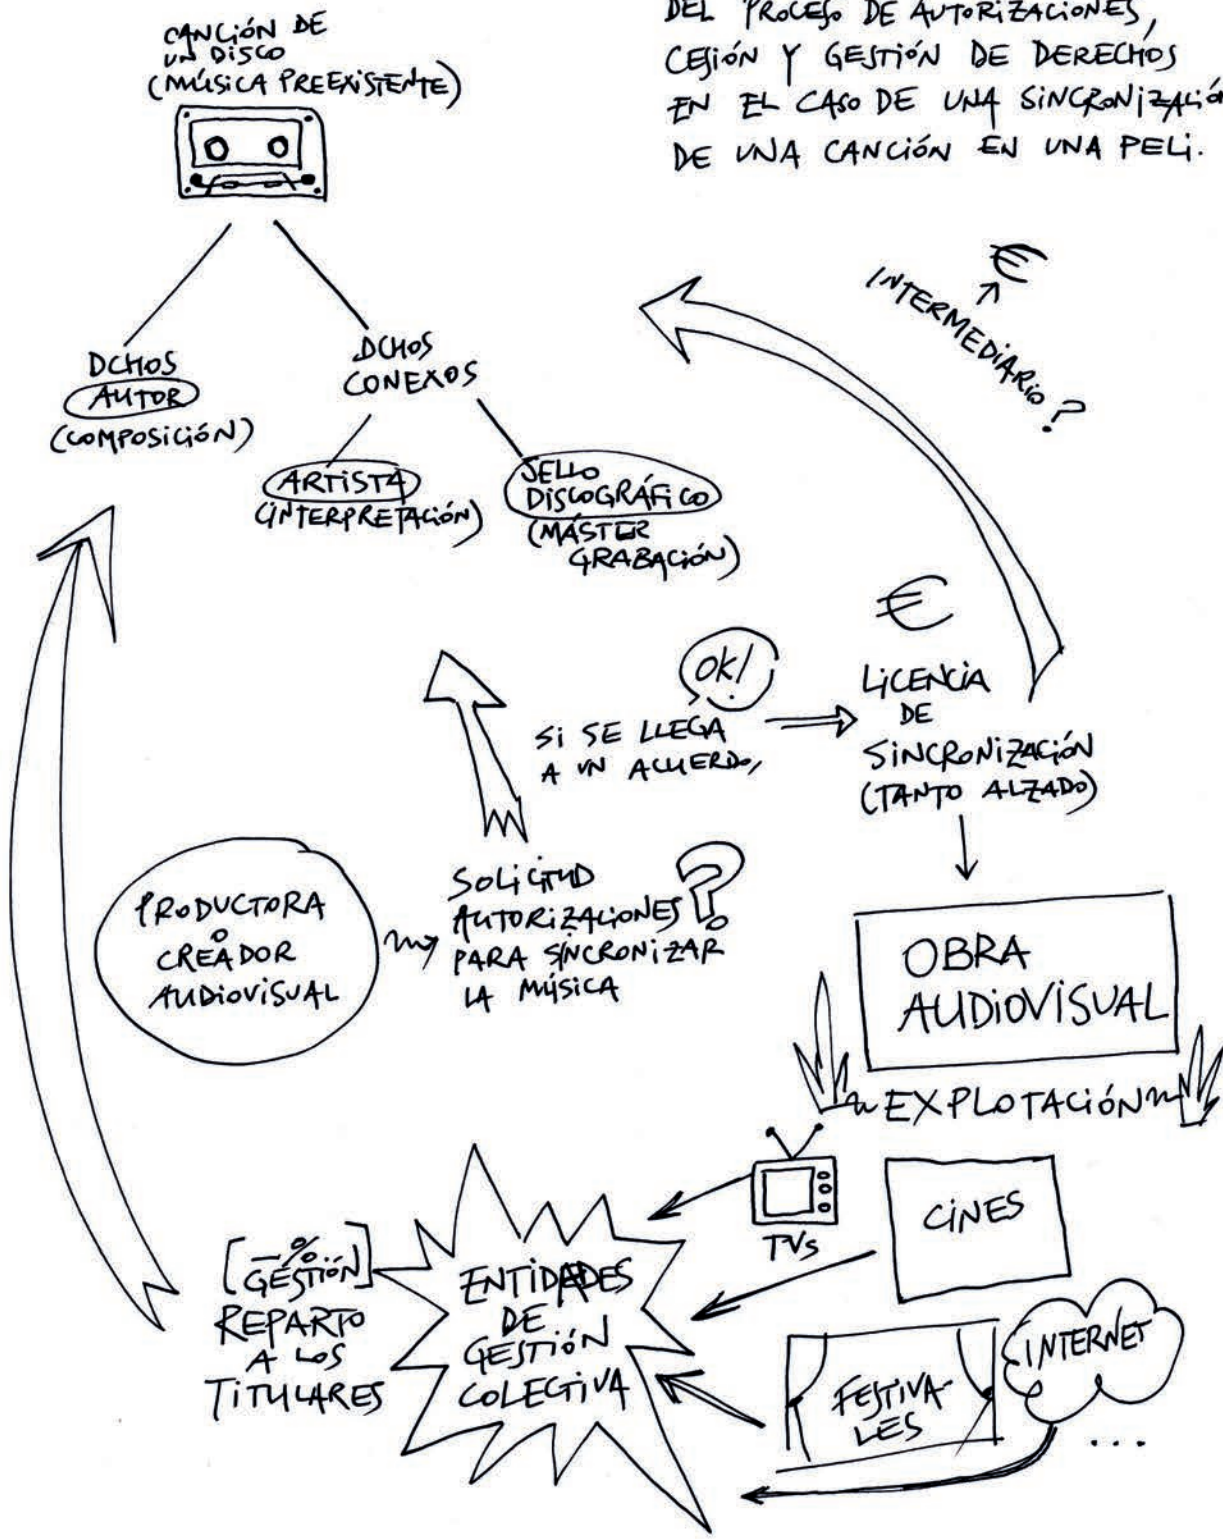 DEL PROCESO DE AUTORIZACIONES,
CESIÓN Y GESTIÓN DE DERECHOS
EN EL CASO DE UNA SINCRONIZACIÓN
DE UNA CANCIÓN EN UNA PELI.
CANCIÓN DE
UN DISCO
(MÚSICA PREEXISTENTE)
DCHOS
AUTOR
(COMPOSICIÓN)
DCHOS
CONEXOS
ARTISTA
(INTERPRETACIÓN)
SELLO
DISCOGRÁFICO
(MÁSTER
GRABACIÓN)
€
INTERMEDIARIO?
OK!
SI SE LLEGA
A UN ACUERDO,
€
LICENCIA
DE
SINCRONIZACIÓN
(TANTO ALZADO)
PRODUCTORA
O
CREADOR
AUDIOVISUAL
SOLICITUD
AUTORIZACIONES ?
PARA SINCRONIZAR
LA MÚSICA
OBRA
AUDIOVISUAL
EXPLOTACIÓN
TVs
CINES
FESTIVA-
LES
INTERNET
...
ENTIDADES
DE
GESTIÓN
COLECTIVA
[-%
GESTIÓN]
REPARTO
A LOS
TITULARES